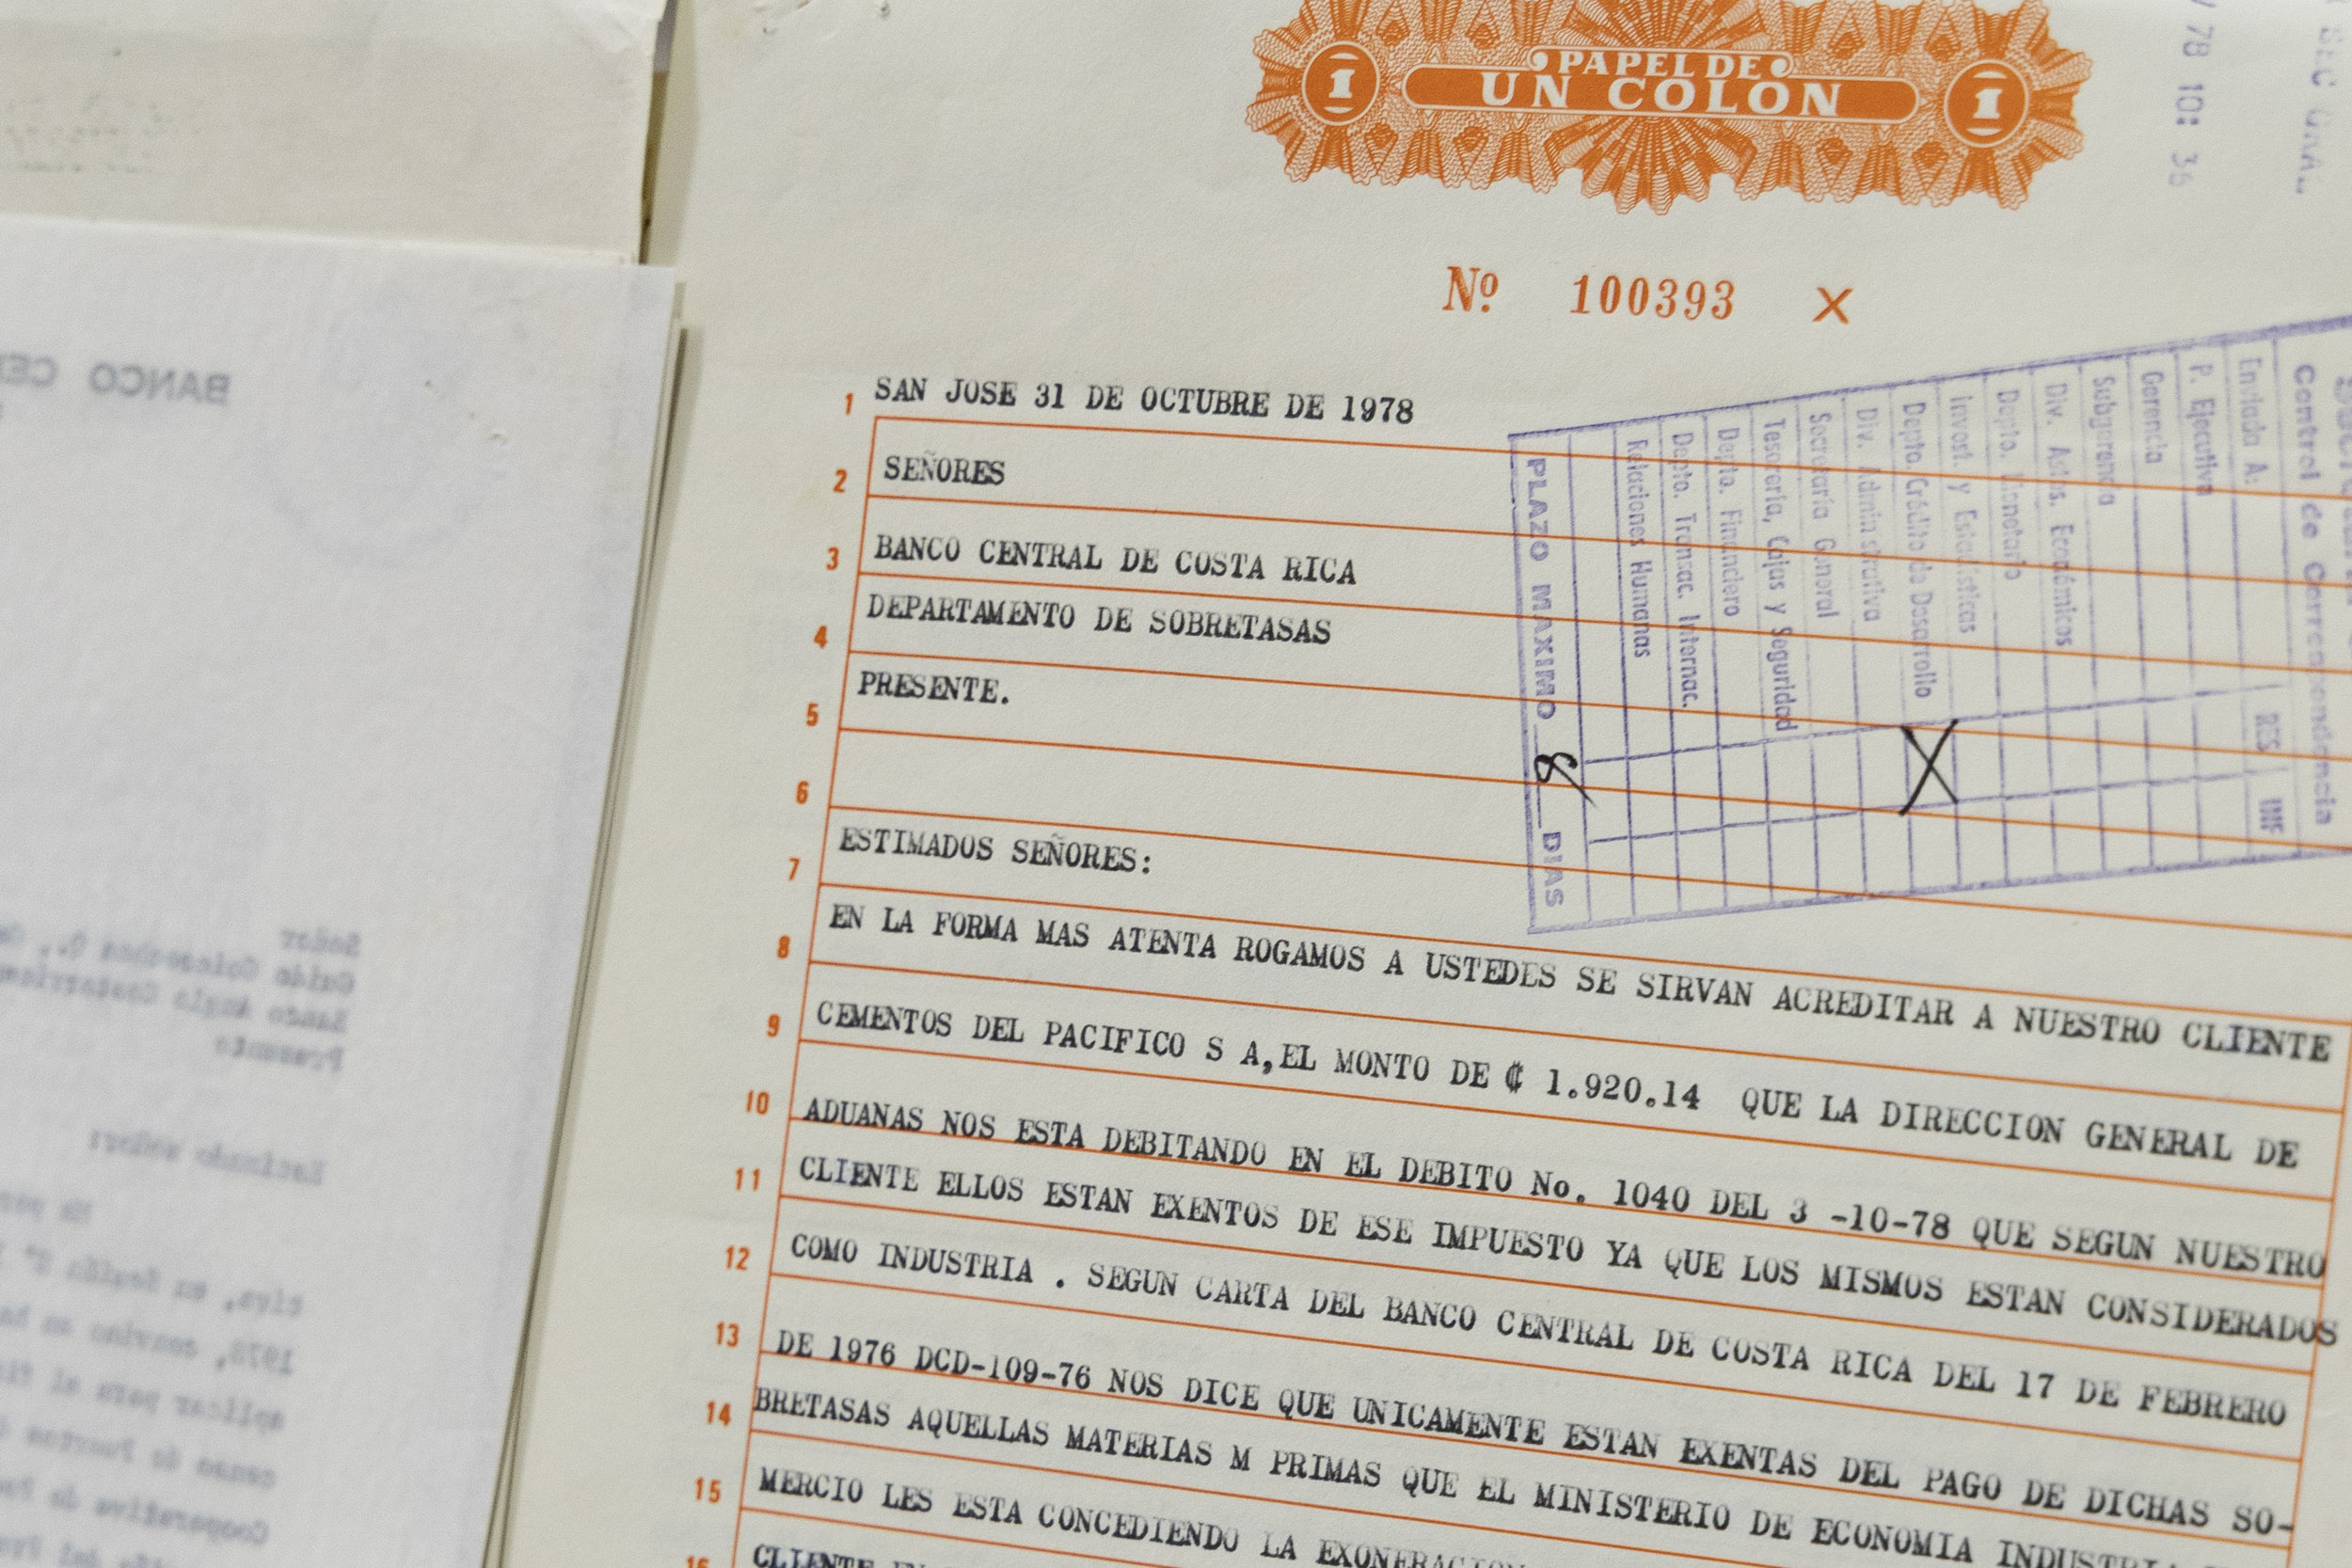 PAPEL DE
UN COLON
1 1
Nº 100393 X
78 10: 36
1 SAN JOSE 31 DE OCTUBRE DE 1978
2 SEÑORES
3 BANCO CENTRAL DE COSTA RICA
4 DEPARTAMENTO DE SOBRETASAS
5 PRESENTE.
6
7 ESTIMADOS SEÑORES:
8 EN LA FORMA MAS ATENTA ROGAMOS A USTEDES SE SIRVAN ACREDITAR A NUESTRO CLIENTE
9 CEMENTOS DEL PACIFICO S A,EL MONTO DE ₡ 1.920.14 QUE LA DIRECCION GENERAL DE
10 ADUANAS NOS ESTA DEBITANDO EN EL DEBITO No. 1040 DEL 3 -10-78 QUE SEGUN NUESTRO
11 CLIENTE ELLOS ESTAN EXENTOS DE ESE IMPUESTO YA QUE LOS MISMOS ESTAN CONSIDERADOS
12 COMO INDUSTRIA . SEGUN CARTA DEL BANCO CENTRAL DE COSTA RICA DEL 17 DE FEBRERO
13 DE 1976 DCD-109-76 NOS DICE QUE UNICAMENTE ESTAN EXENTAS DEL PAGO DE DICHAS SO-
14 BRETASAS AQUELLAS MATERIAS M PRIMAS QUE EL MINISTERIO DE ECONOMIA INDUSTRIA
15 MERCIO LES ESTA CONCEDIENDO LA EXONERACION
16 CLIENTE
Control de Correspondencia
Enviada A: RES INF
P. Ejecutiva
Gerencia
Subgerencia
Div. Asist. Económicos
Depto. Monetario
Invest. y Estadísticas
Depto. Crédito de Desarrollo X
Div. Administrativa
Secretaría General
Tesorería, Cajas y Seguridad
Depto. Financiero
Depto. Transac. Internac.
Relaciones Humanas
PLAZO MAXIMO 8 DIAS
BANCO CE
Señor
Guido Goicoechea Q.,
Banco Anglo Costarricen
Presente
Estimado señor:
tiva, en Sesión
1978, convino en
aplicar para al
canso de Puertos
Cooperativa de